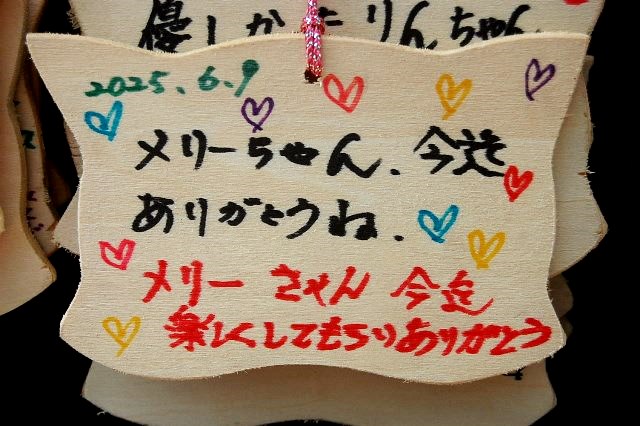 優しかったりんちゃん
2025.6.9
メリーちゃん.今迄
ありがとうね.
メリーちゃん 今迄
楽しくしてもらいありがとう